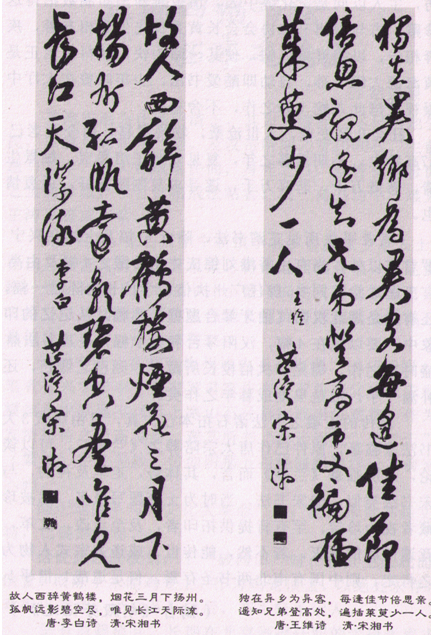 獨在異鄉為異客每逢佳節
倍思親遙知兄弟登高處徧插
茱萸少一人 王維 芷灣宋湘
故人西辭黃鶴樓煙花三月下
揚州孤帆遠影碧空盡唯見
長江天際流 李白 芷灣宋湘
故人西辞黄鹤楼，烟花三月下扬州。
孤帆远影碧空尽，唯见长江天际流。
唐·李白诗 清·宋湘书
独在异乡为异客，每逢佳节倍思亲。
遥知兄弟登高处，遍插茱萸少一人。
唐·王维诗 清·宋湘书